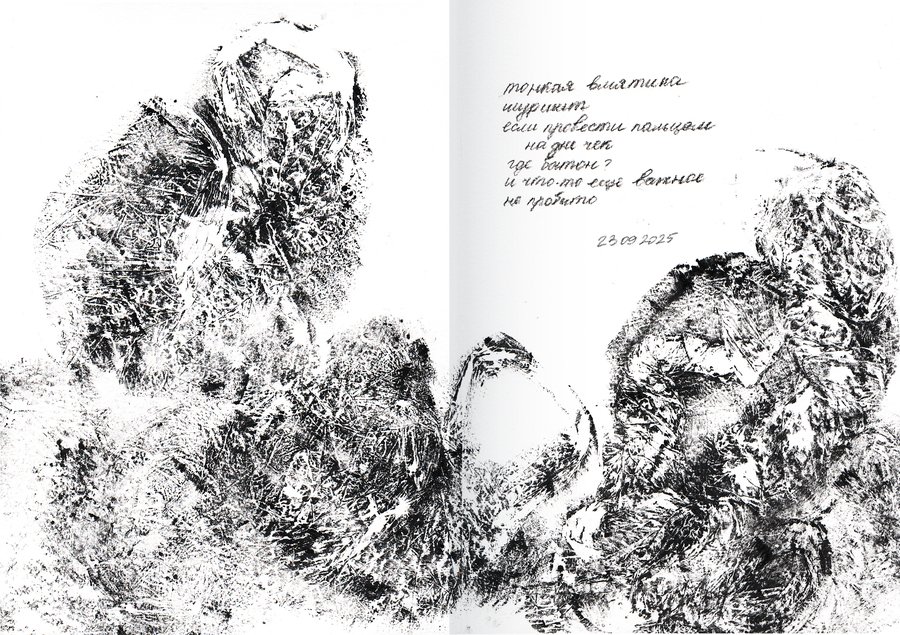 тонкая вмятина
шуршит
если провести пальцем
на дне чек
где батон?
и что-то ещё важное
не пробито
23 09 2025